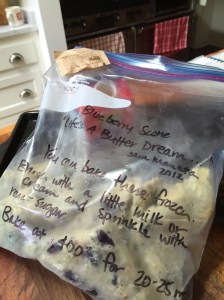 Blueberry Scone
"Like A Butter Dream"
2012
You can bake these frozen.
Brush with a little milk or
cream and sprinkle with
raw sugar
Bake at 400° for 20-25 m